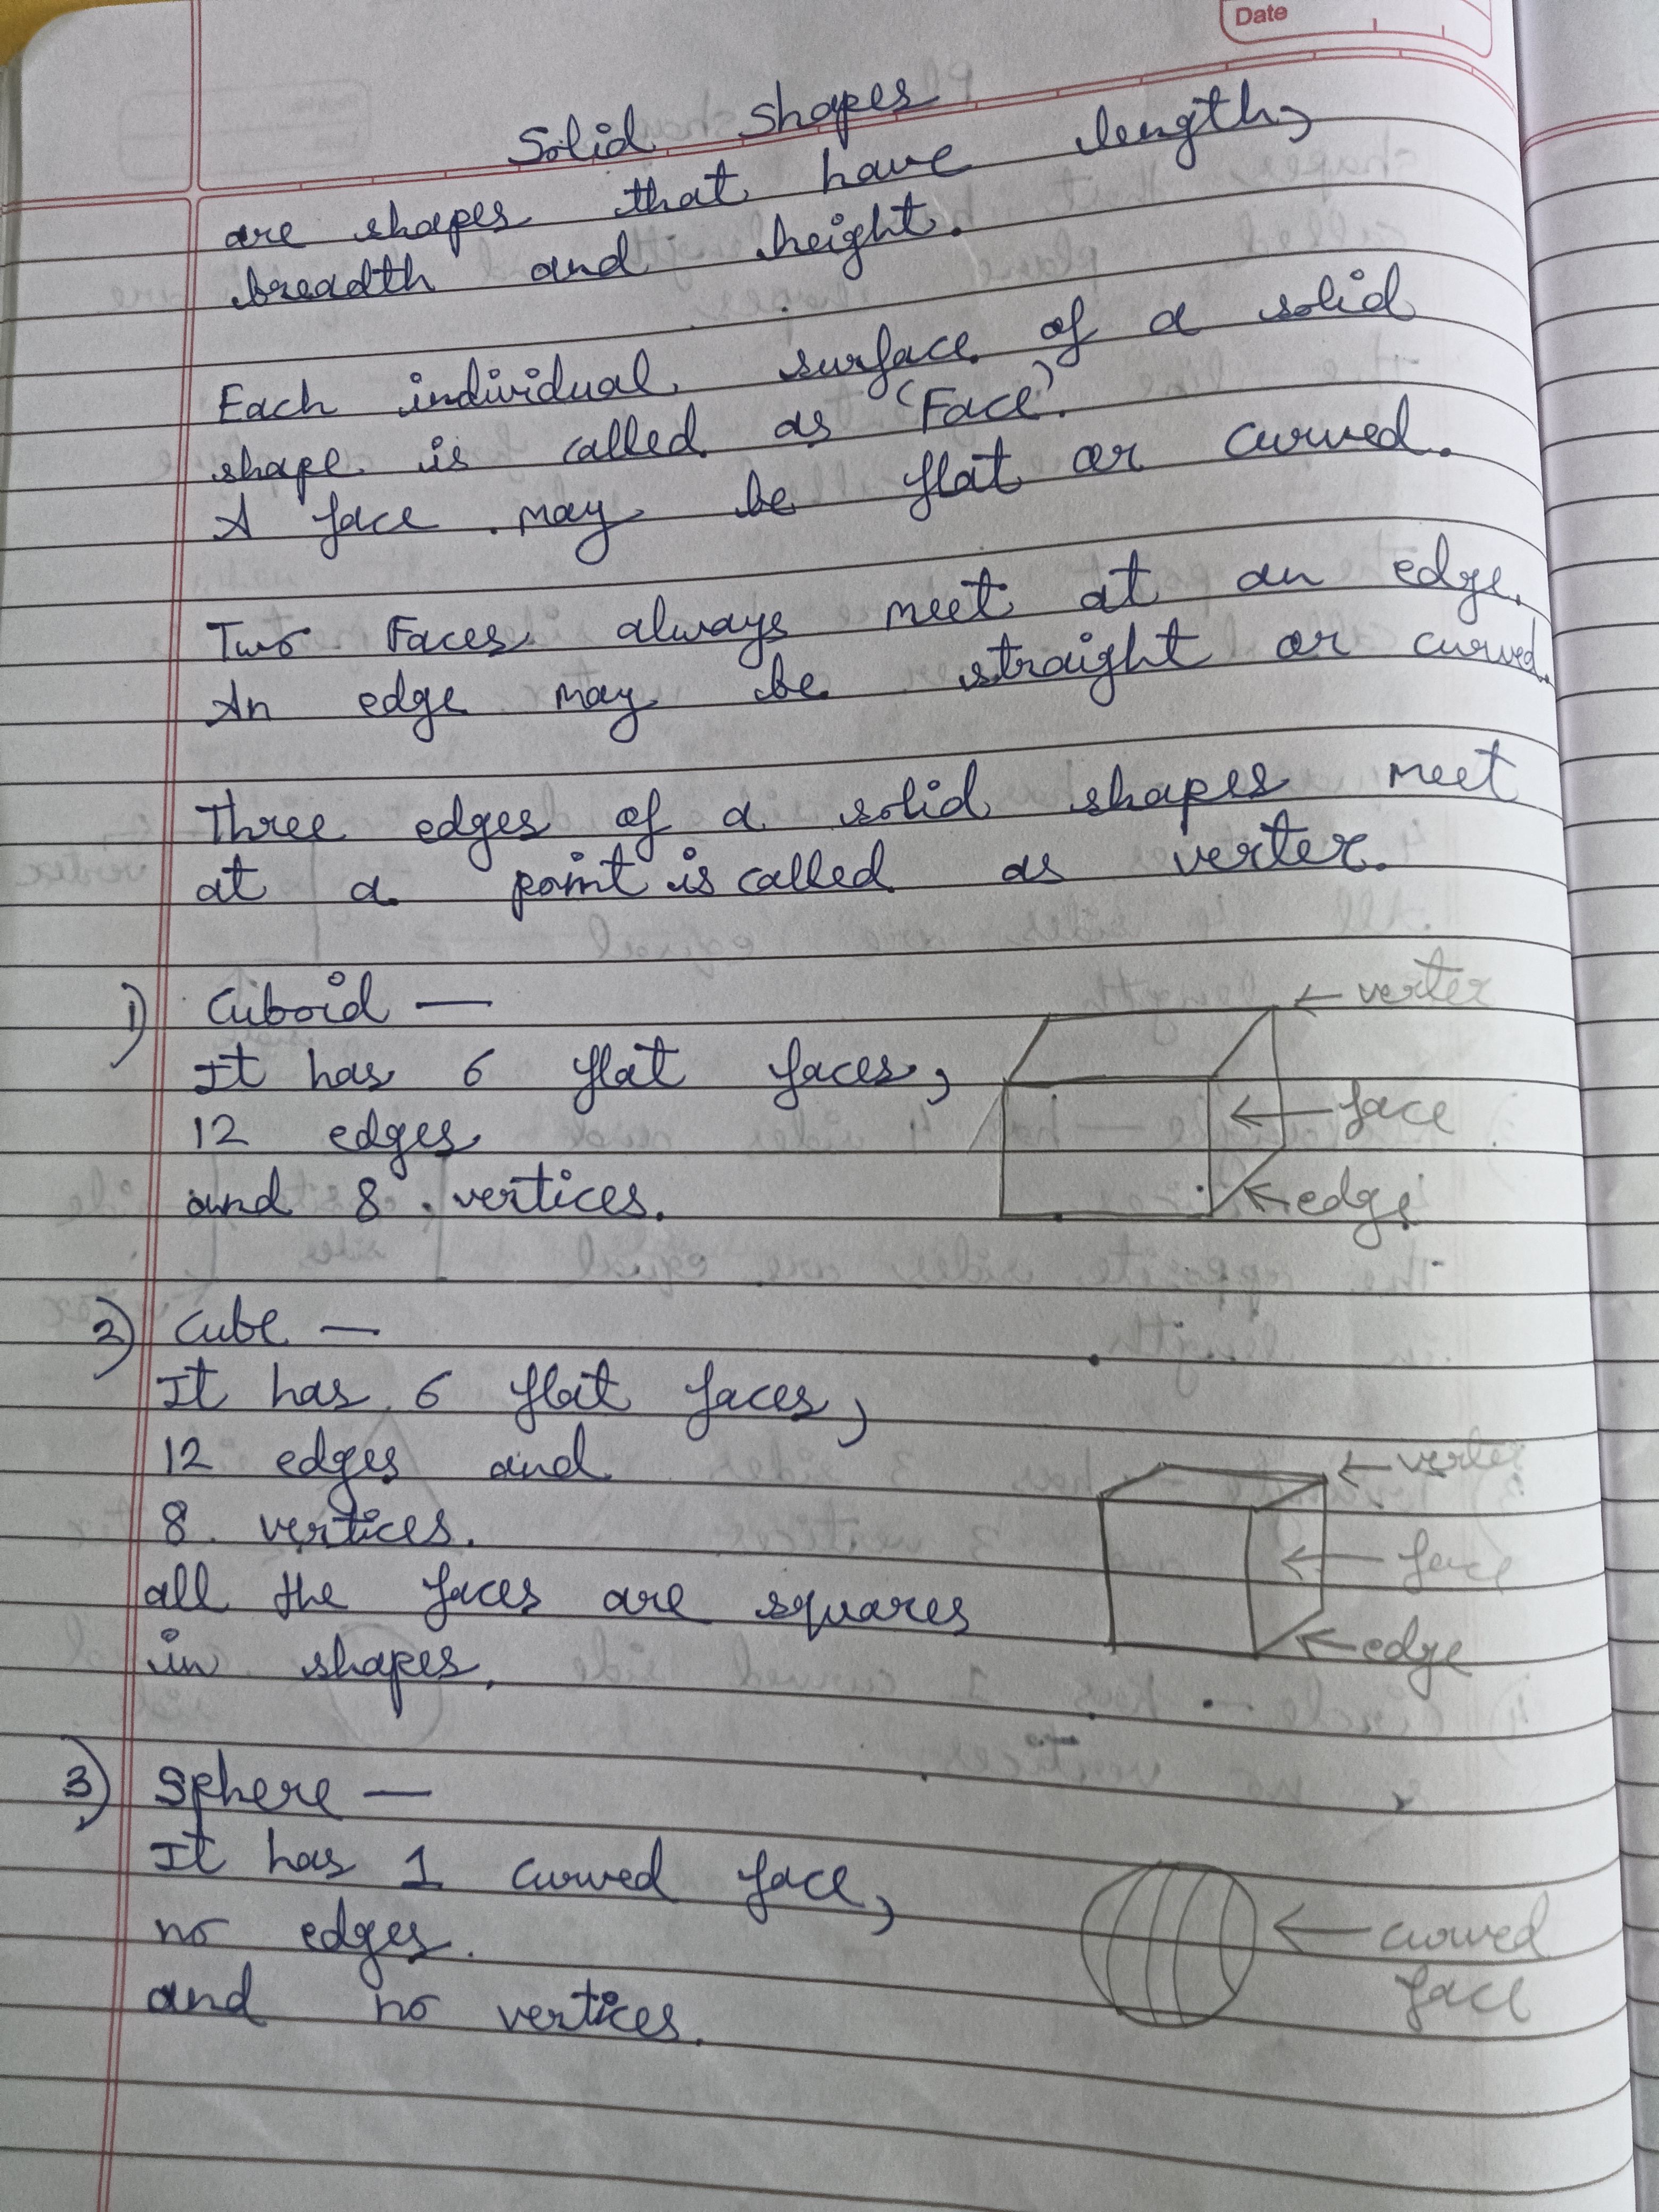 Date
Solid shapes
are shapes that have length,
breadth and height.
Each individual surface of a solid
shape is called as 'Face'.
A face may be flat or curved.
Two Faces always meet at an edge.
An edge may be straight or curved.
Three edges of a solid shapes meet
at a point is called as verter.
1) Cuboid —
It has 6 flat faces,
12 edges
and 8 vertices.
← verter
← face
← edge
2) Cube —
It has 6 flat faces,
12 edges and
8 vertices.
all the faces are squares
in shapes.
← verter
← face
← edge
3) Sphere —
It has 1 curved face,
no edges.
and no vertices.
← curved
face